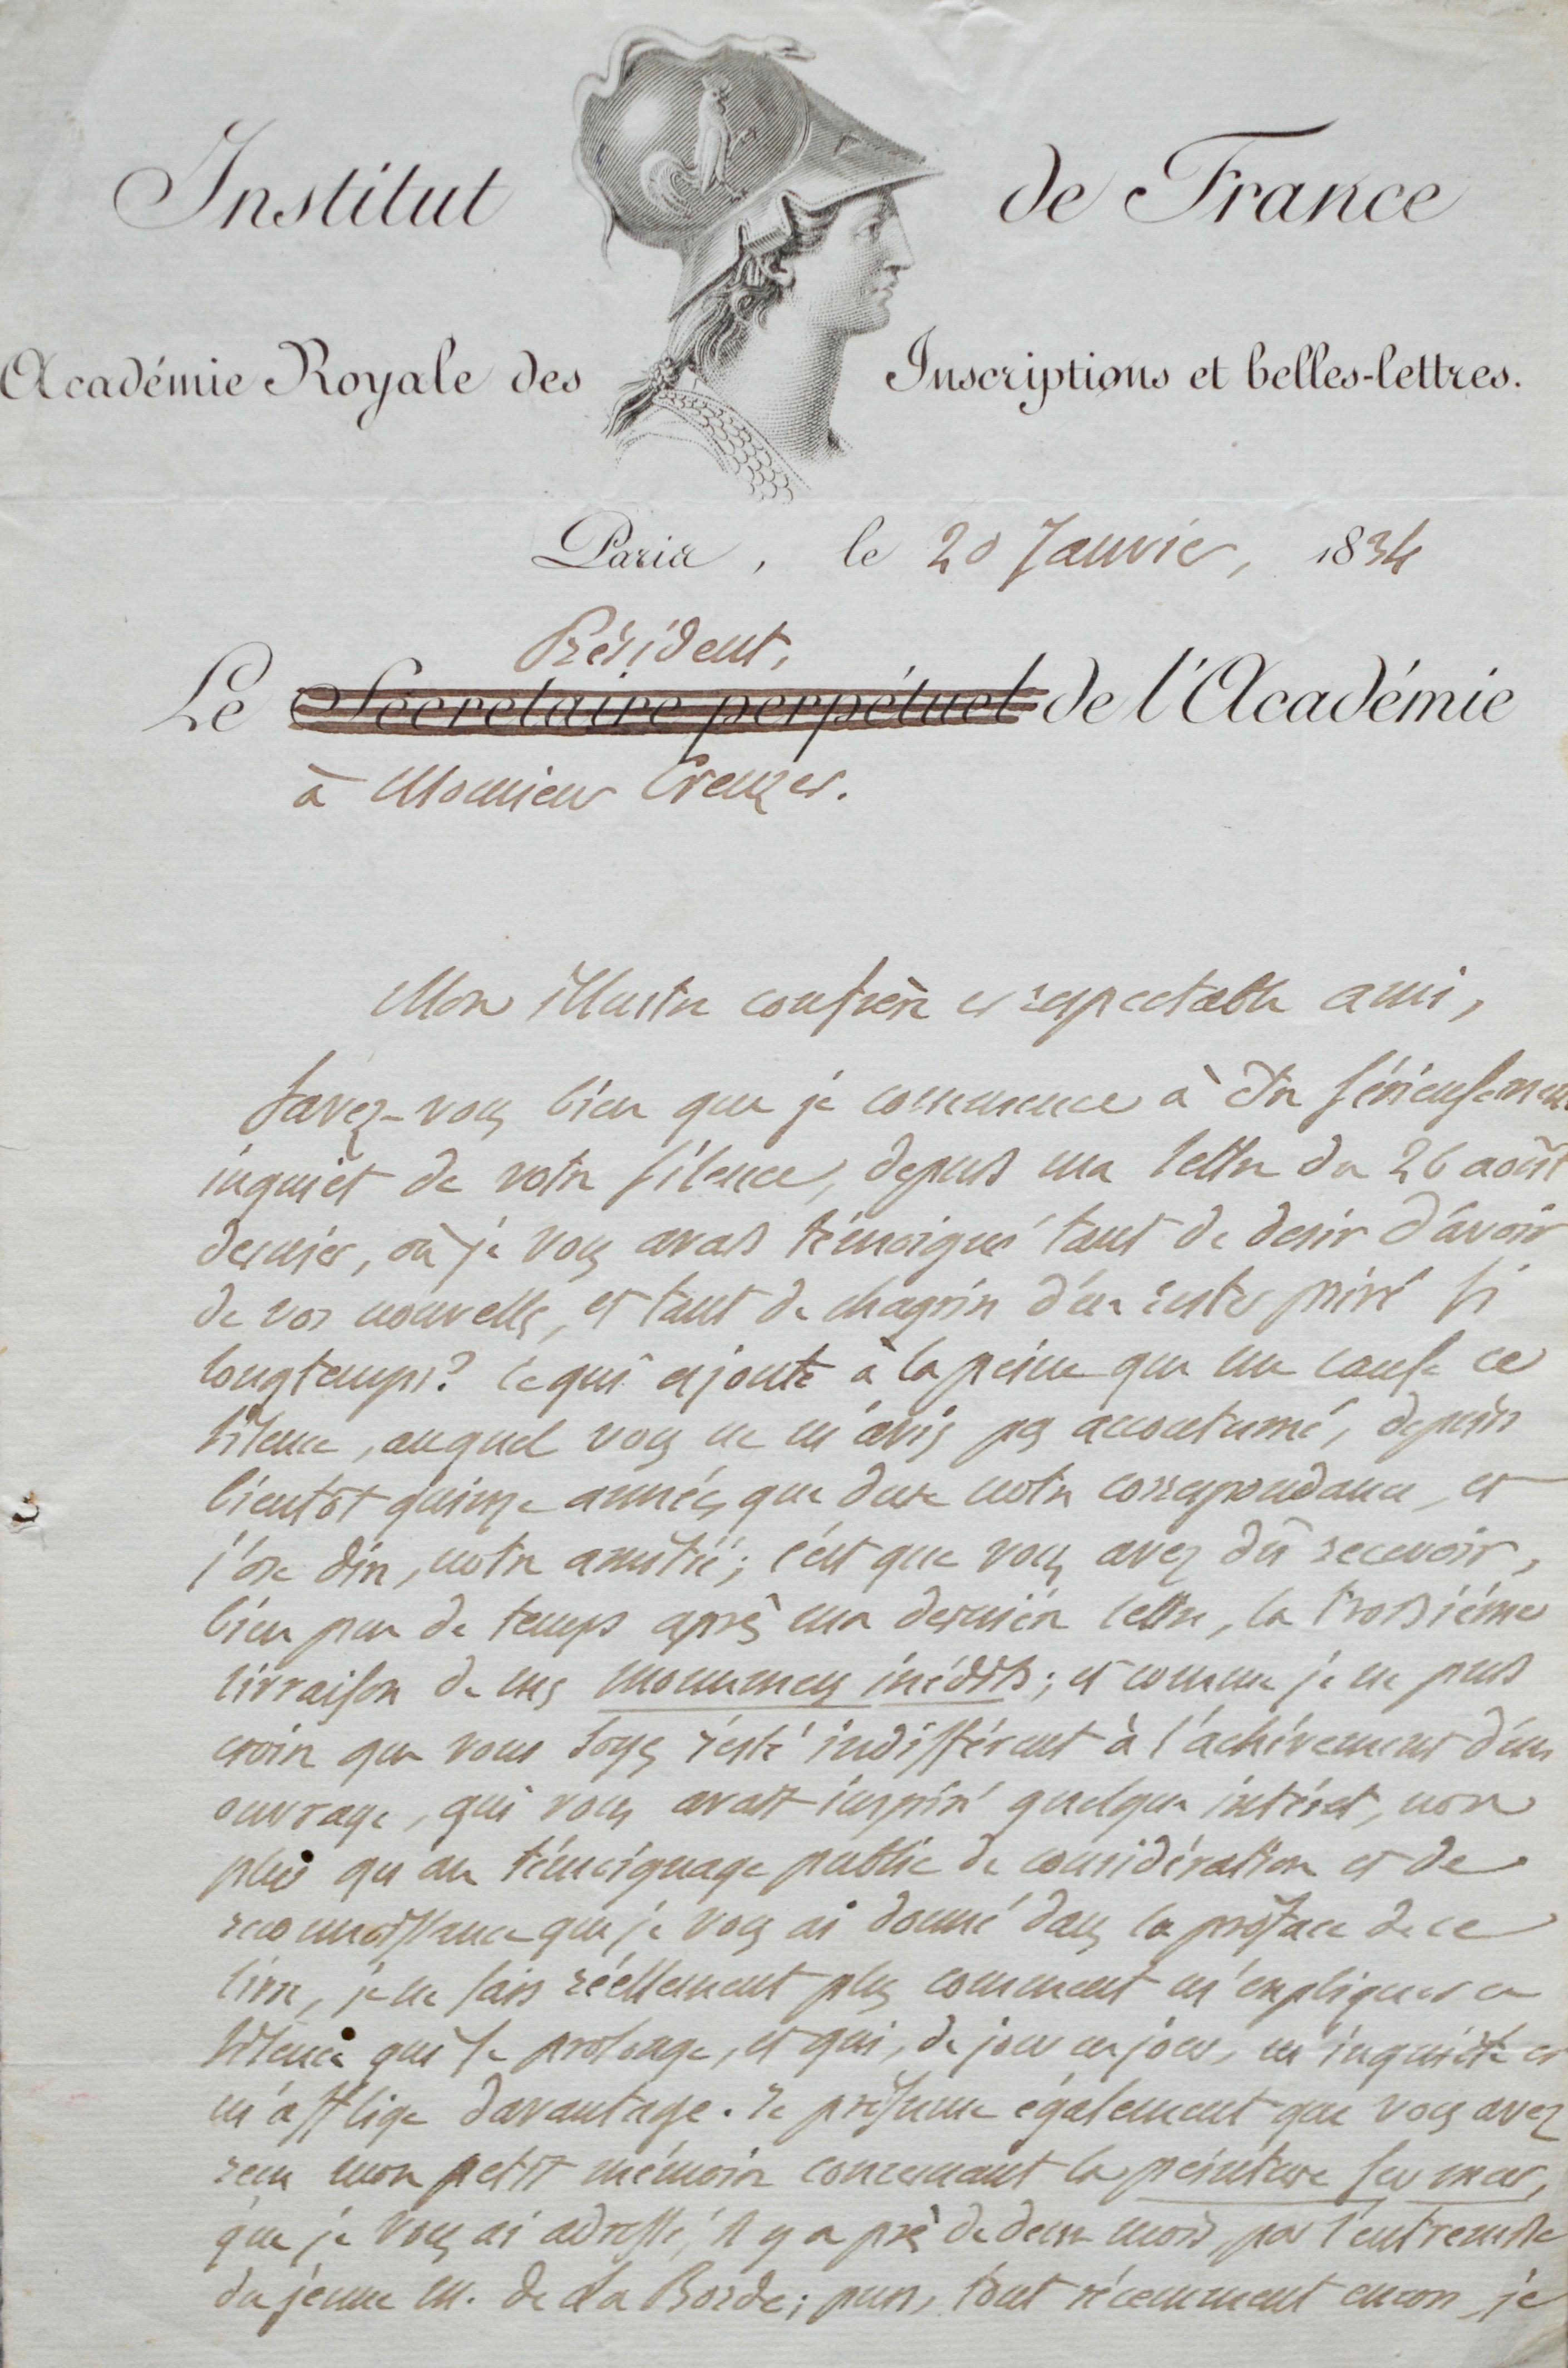 Institut de France
Académie Royale des Inscriptions et belles-lettres.
Paris, le 20 Janvier, 1834
Président,
Le Secrétaire perpétuel de l'Académie
à Monsieur Creuzer.
Mon illustre confrère et respectable ami,
Savez-vous bien que je commence à être sérieusement
inquiet de votre silence, depuis ma lettre du 26 août
dernier, où je vous avais témoigné tant de desir d'avoir
de vos nouvelles, et tant de chagrin d'en rester privé si
longtemps? Ce qui ajoute à la peine que me cause ce
silence, auquel vous ne m'aviez pas accoutumé, depuis
bientôt quinze années que dure notre correspondance, et
j'ose dire, notre amitié; c'est que vous avez dû recevoir,
bien peu de temps après ma dernière lettre, la troisième
livraison de mes monumens inédits; et comme je ne puis
croire que vous soyez resté indifférent à l'achèvement d'un
ouvrage, qui vous avait inspiré quelque intérêt, non
plus qu'au témoignage public de considération et de
reconnaissance que je vous ai donné dans la préface de ce
livre, je ne sais réellement plus comment m'expliquer ce
silence qui se prolonge, et qui, de jour en jour, m'inquiète et
m'afflige davantage. Je présume également que vous avez
reçu mon petit mémoire concernant la peinture sur mur,
que je vous ai adressé, il y a près de deux mois, par l'entremise
du jeune M. de La Borde; puis, tout récemment encore, je